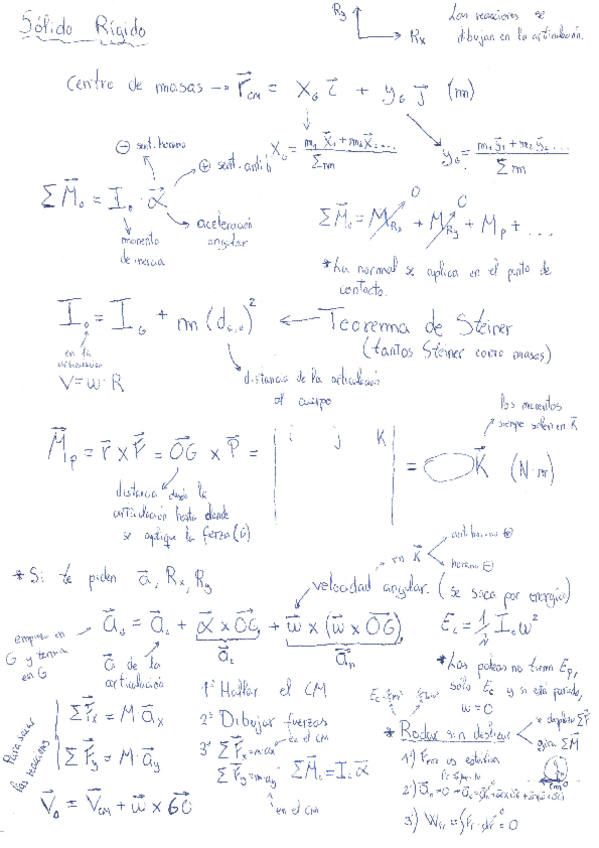 Sólido Rígido
Ry
Rx
Las reacciones se
dibujan en la articulación.
Centro de masas → r⃗CM = XG i⃗ + yG j⃗ (m)
XG = m₁x⃗₁+m₂x⃗₂... / Σm
yG = m₁y⃗₁+m₂y⃗₂... / Σm
⊖ sent. horario
⊕ sent. antih
ΣM⃗o = Io · α⃗
momento
de inercia
aceleración
angular
ΣM⃗o = MRx + MRy + Mp + ...
0 0
*La normal se aplica en el punto de
contacto.
Io = IG + m (dG,o)² ← Teorema de Steiner
(tantos Steiner como masas)
en la
articulación
V = w · R
distancia de la articulación
al cuerpo
M⃗p = r⃗ x F⃗ = OG⃗ x P⃗ = | i j k | = K⃗ (N·m)
los momentos
siempre salen en K⃗
distancia desde la
articulación hasta donde
se aplique la fuerza (G)
* Si te piden a⃗, Rx, Ry
en K⃗
antihorario ⊕
horario ⊖
velocidad angular. (se saca por energía)
a⃗G = a⃗o + α⃗ x OG⃗ + w⃗ x (w⃗ x OG⃗)
a⃗t a⃗n
Ec = 1/2 Io w²
empieza en
G y termina
en G
a⃗ de la
articulación
*Las poleas no tienen Ep,
solo Ec y si está parada,
w = 0
Para sacar
las reacciones
ΣF⃗x = M·a⃗x
ΣF⃗y = M·a⃗y
V⃗o = V⃗CM + w⃗ x GO⃗
1º Hallar el CM
2º Dibujar fuerzas
en el CM
3º ΣF⃗x = m·ax
ΣF⃗y = m·ay
ΣM⃗o = Io α⃗
en el CM
* Rodar sin deslizar
se desplaza ΣF⃗
gira ΣM⃗
1º) Froz es estática
3º) WFr = ∫Fr · dr⃗ = 0